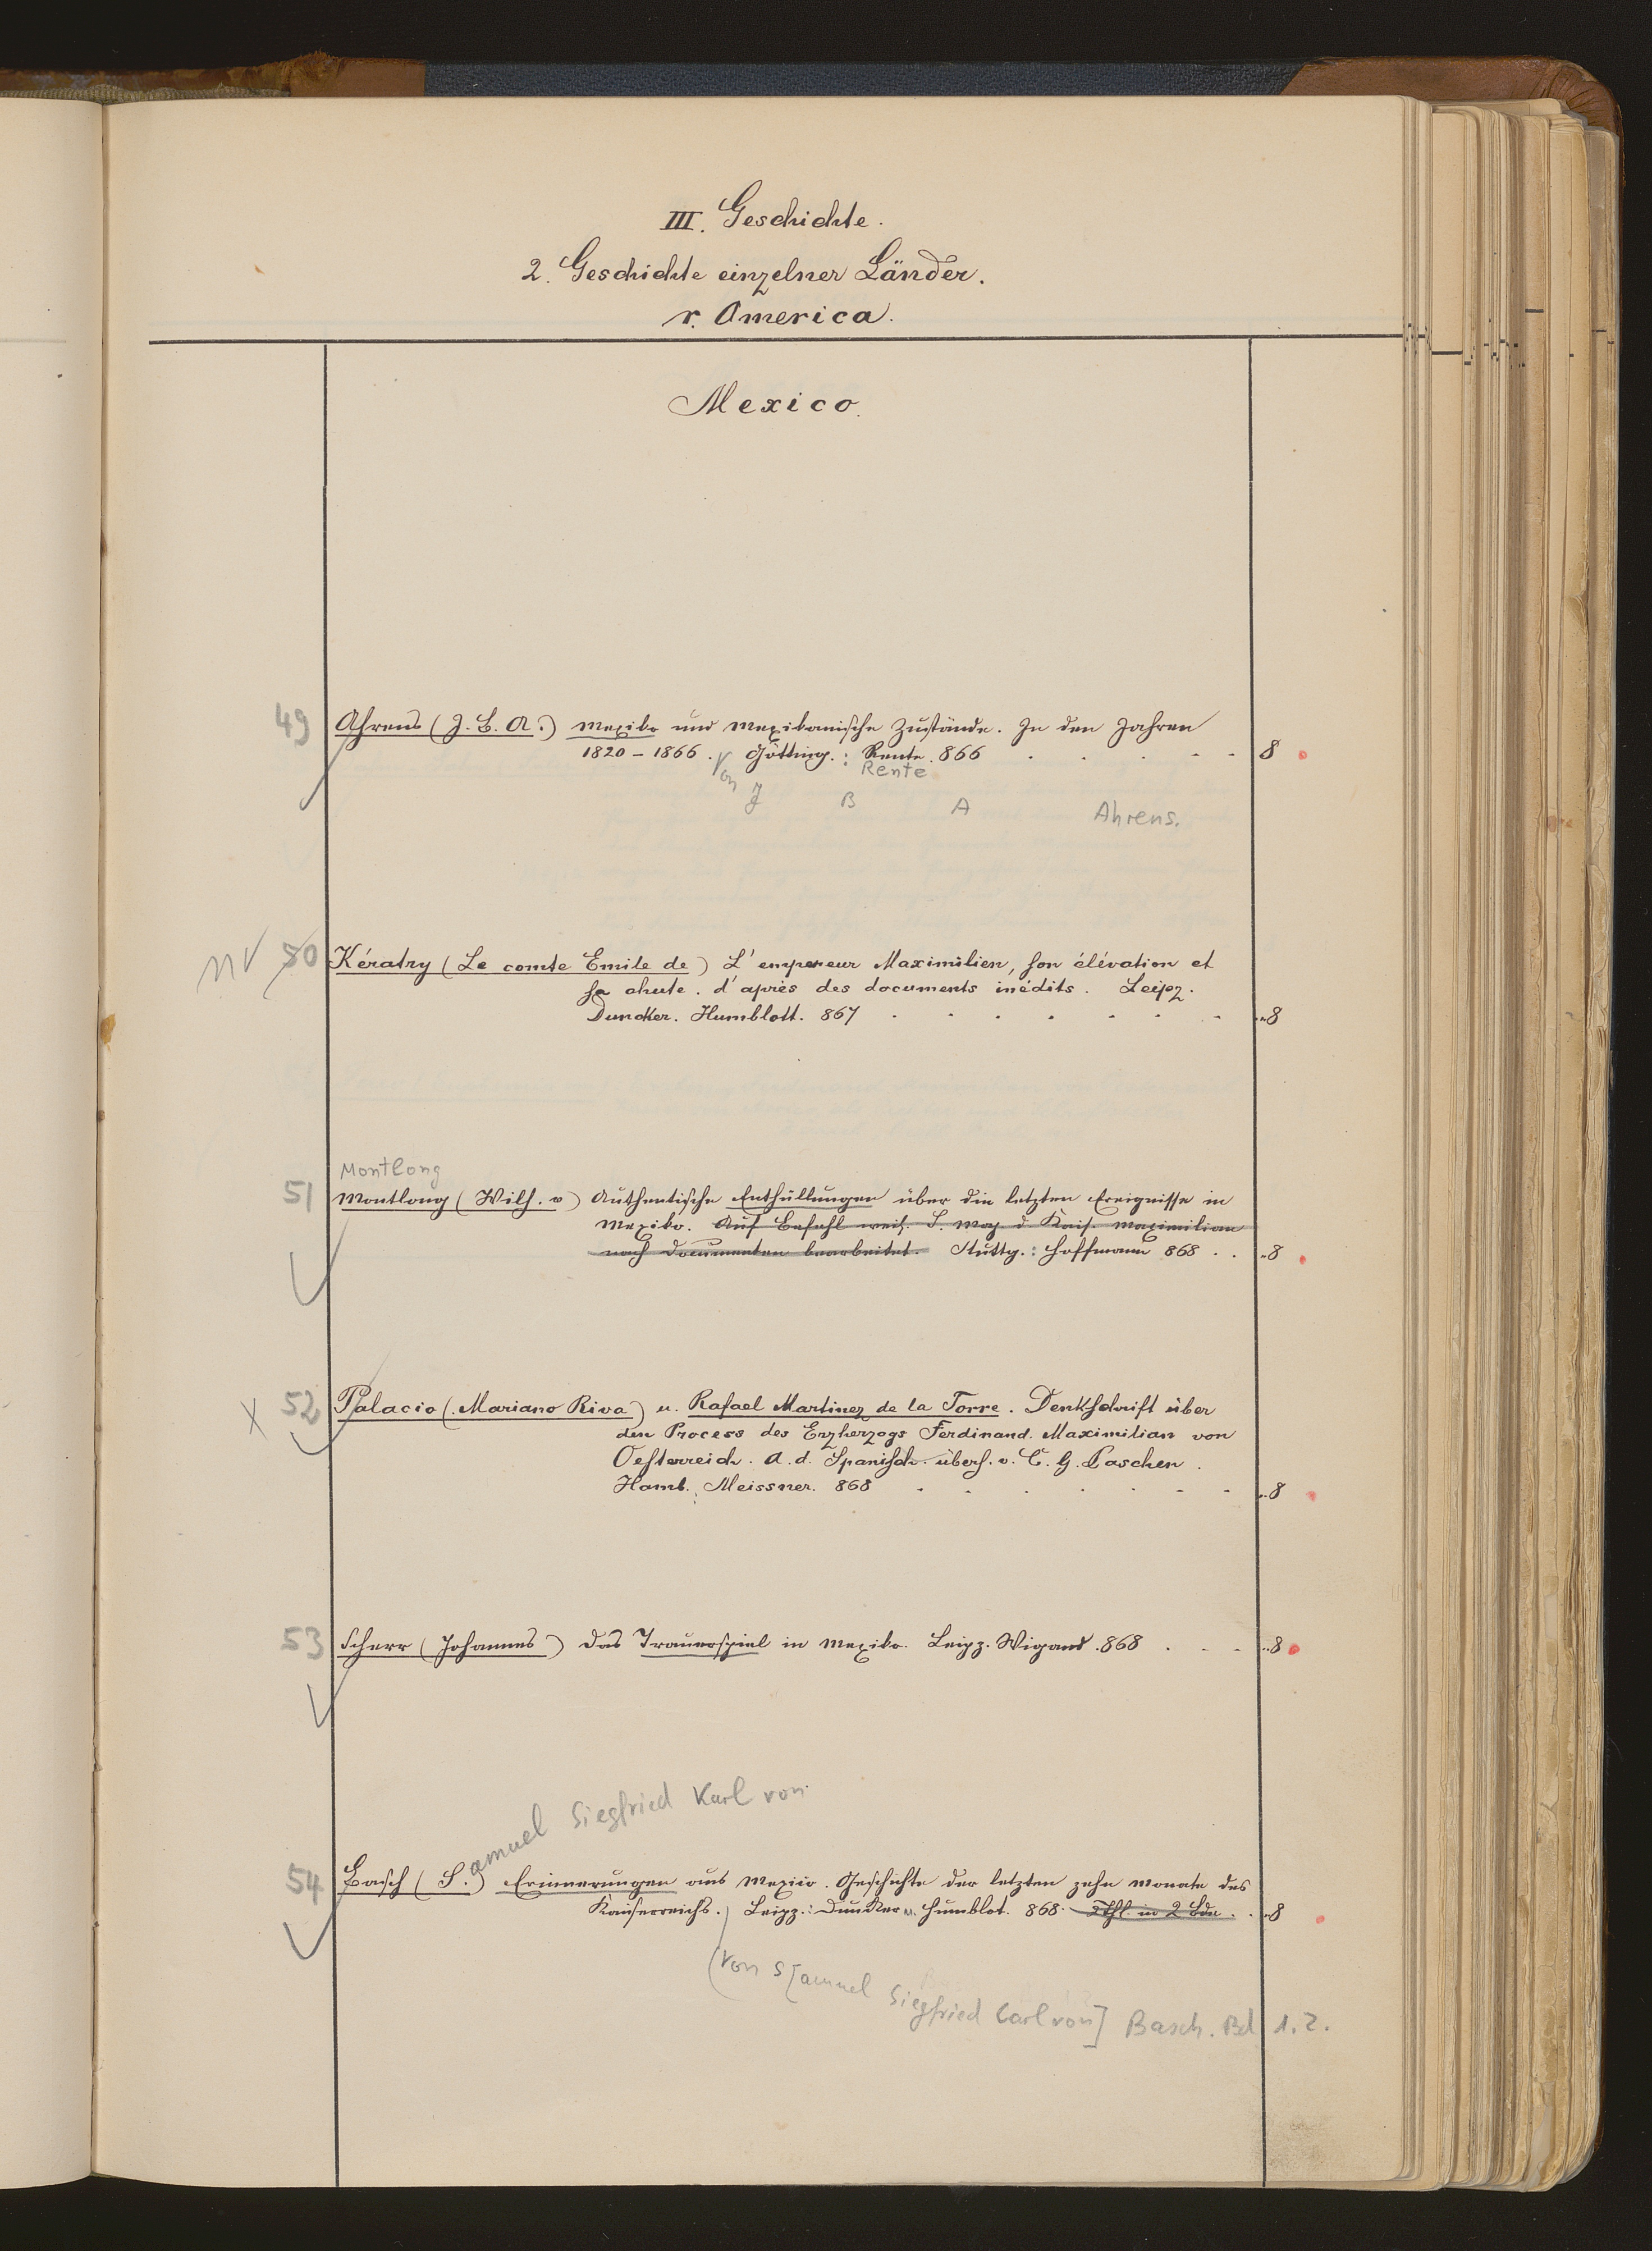 III. Geschichte.
2. Geschichte einzelner Länder.
r. America.
Mexico.
49 Ahrens (J. B. A.) Mexiko und Mexikanische Zustände. In den Jahren
1820 – 1866. Götting.: Rente. 866 . . . . . 8
Rente
Von J B A Ahrens.
NV 50 Kératry (Le comte Emile de) L'empereur Maximilien, son élévation et
sa chute. d'après des documents inédits. Leipz.
Duncker. Humblott. 867 . . . . . . . „8
Montlong
51 Montlong (Wilh. v) Authentische Enthüllungen über die letzten Ereignisse in
Mexiko. Auf Befehl weil. S. Maj d. Kais. Maximilian
nach Documenten bearbeitet. Stuttg.: Hoffmann 868 . . „8
X 52 Palacio (Mariano Riva) u. Rafael Martinez de la Torre. Denkschrift über
den Process des Erzherzogs Ferdinand. Maximilian von
Oesterreich. A. d. Spanisch. übers. v. C. G. Paschen.
Hamb.: Meissner. 868 . . . . . . . „8
53 Scherr (Johannes) Das Trauerspiel in Mexiko. Leipz. Wigand. 868 . . . „8
amuel Siegfried Karl von
54 Basch (S.) Erinnerungen aus Mexico. Geschichte der letzten zehn Monate des
Kaiserreichs. Leipz.: Duncker u. Humblot. 868. 2 Thl. in 2 Bdn. . „8
(Von S[amuel Siegfried Carl von] Basch. Bd 1.2.